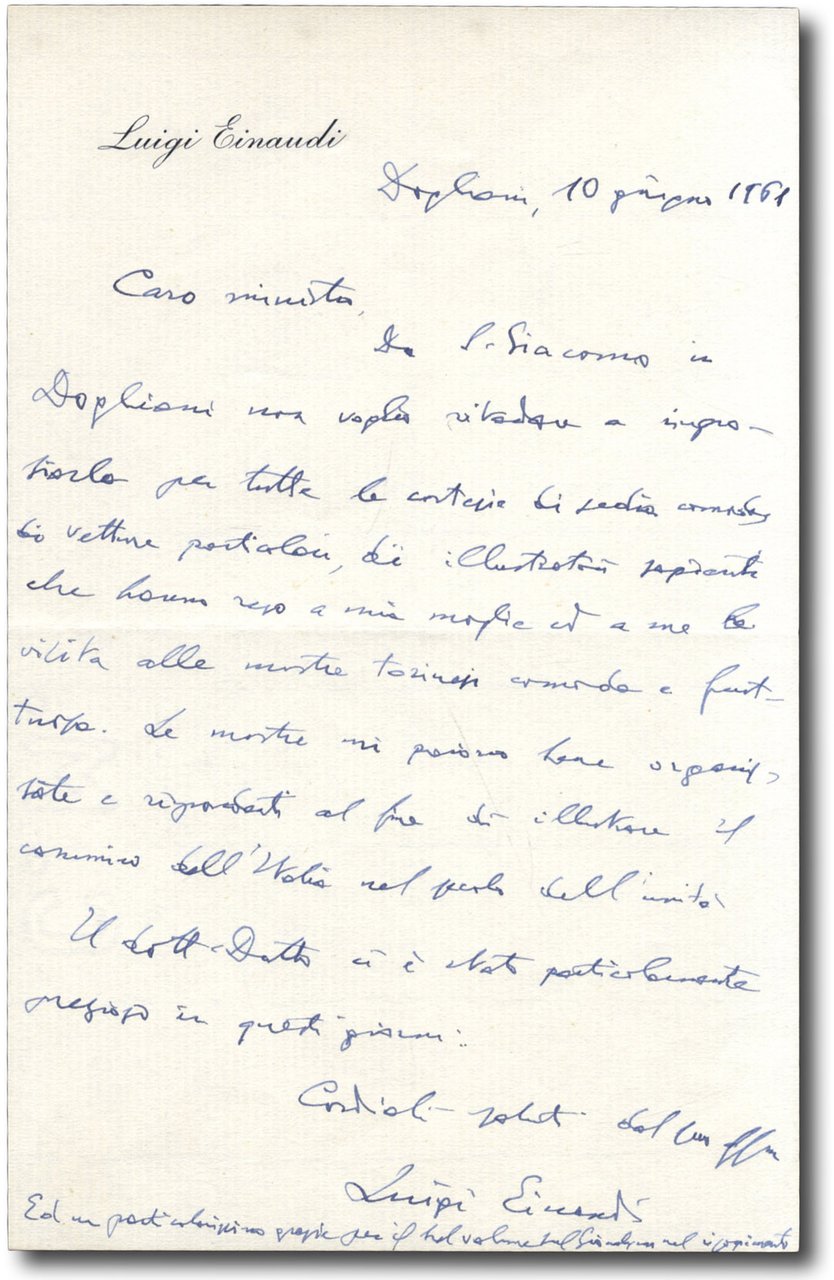 Luigi Einaudi
Dogliani, 10 giugno 1961
Caro ministro,
Da S. Giacomo in
Dogliani non voglio ritardare a ringra-
ziarla per tutte le cortesie di sedia comoda,
di vetture particolari, di illustratori sapienti
che hanno reso a mia moglie ed a me la
visita alle mostre torinesi comoda e frut-
tuosa. Le mostre mi paiono bene organiz-
zate e rispondenti al fine di illustrare il
cammino dell'Italia nel secolo dell'unità.
Il dott. Datta ci è stato particolarmente
prezioso in questi giorni.
Cordiali saluti dal suo aff.mo
Luigi Einaudi
Ed un particolarissimo grazie per il bel volume sul nel risorgimento